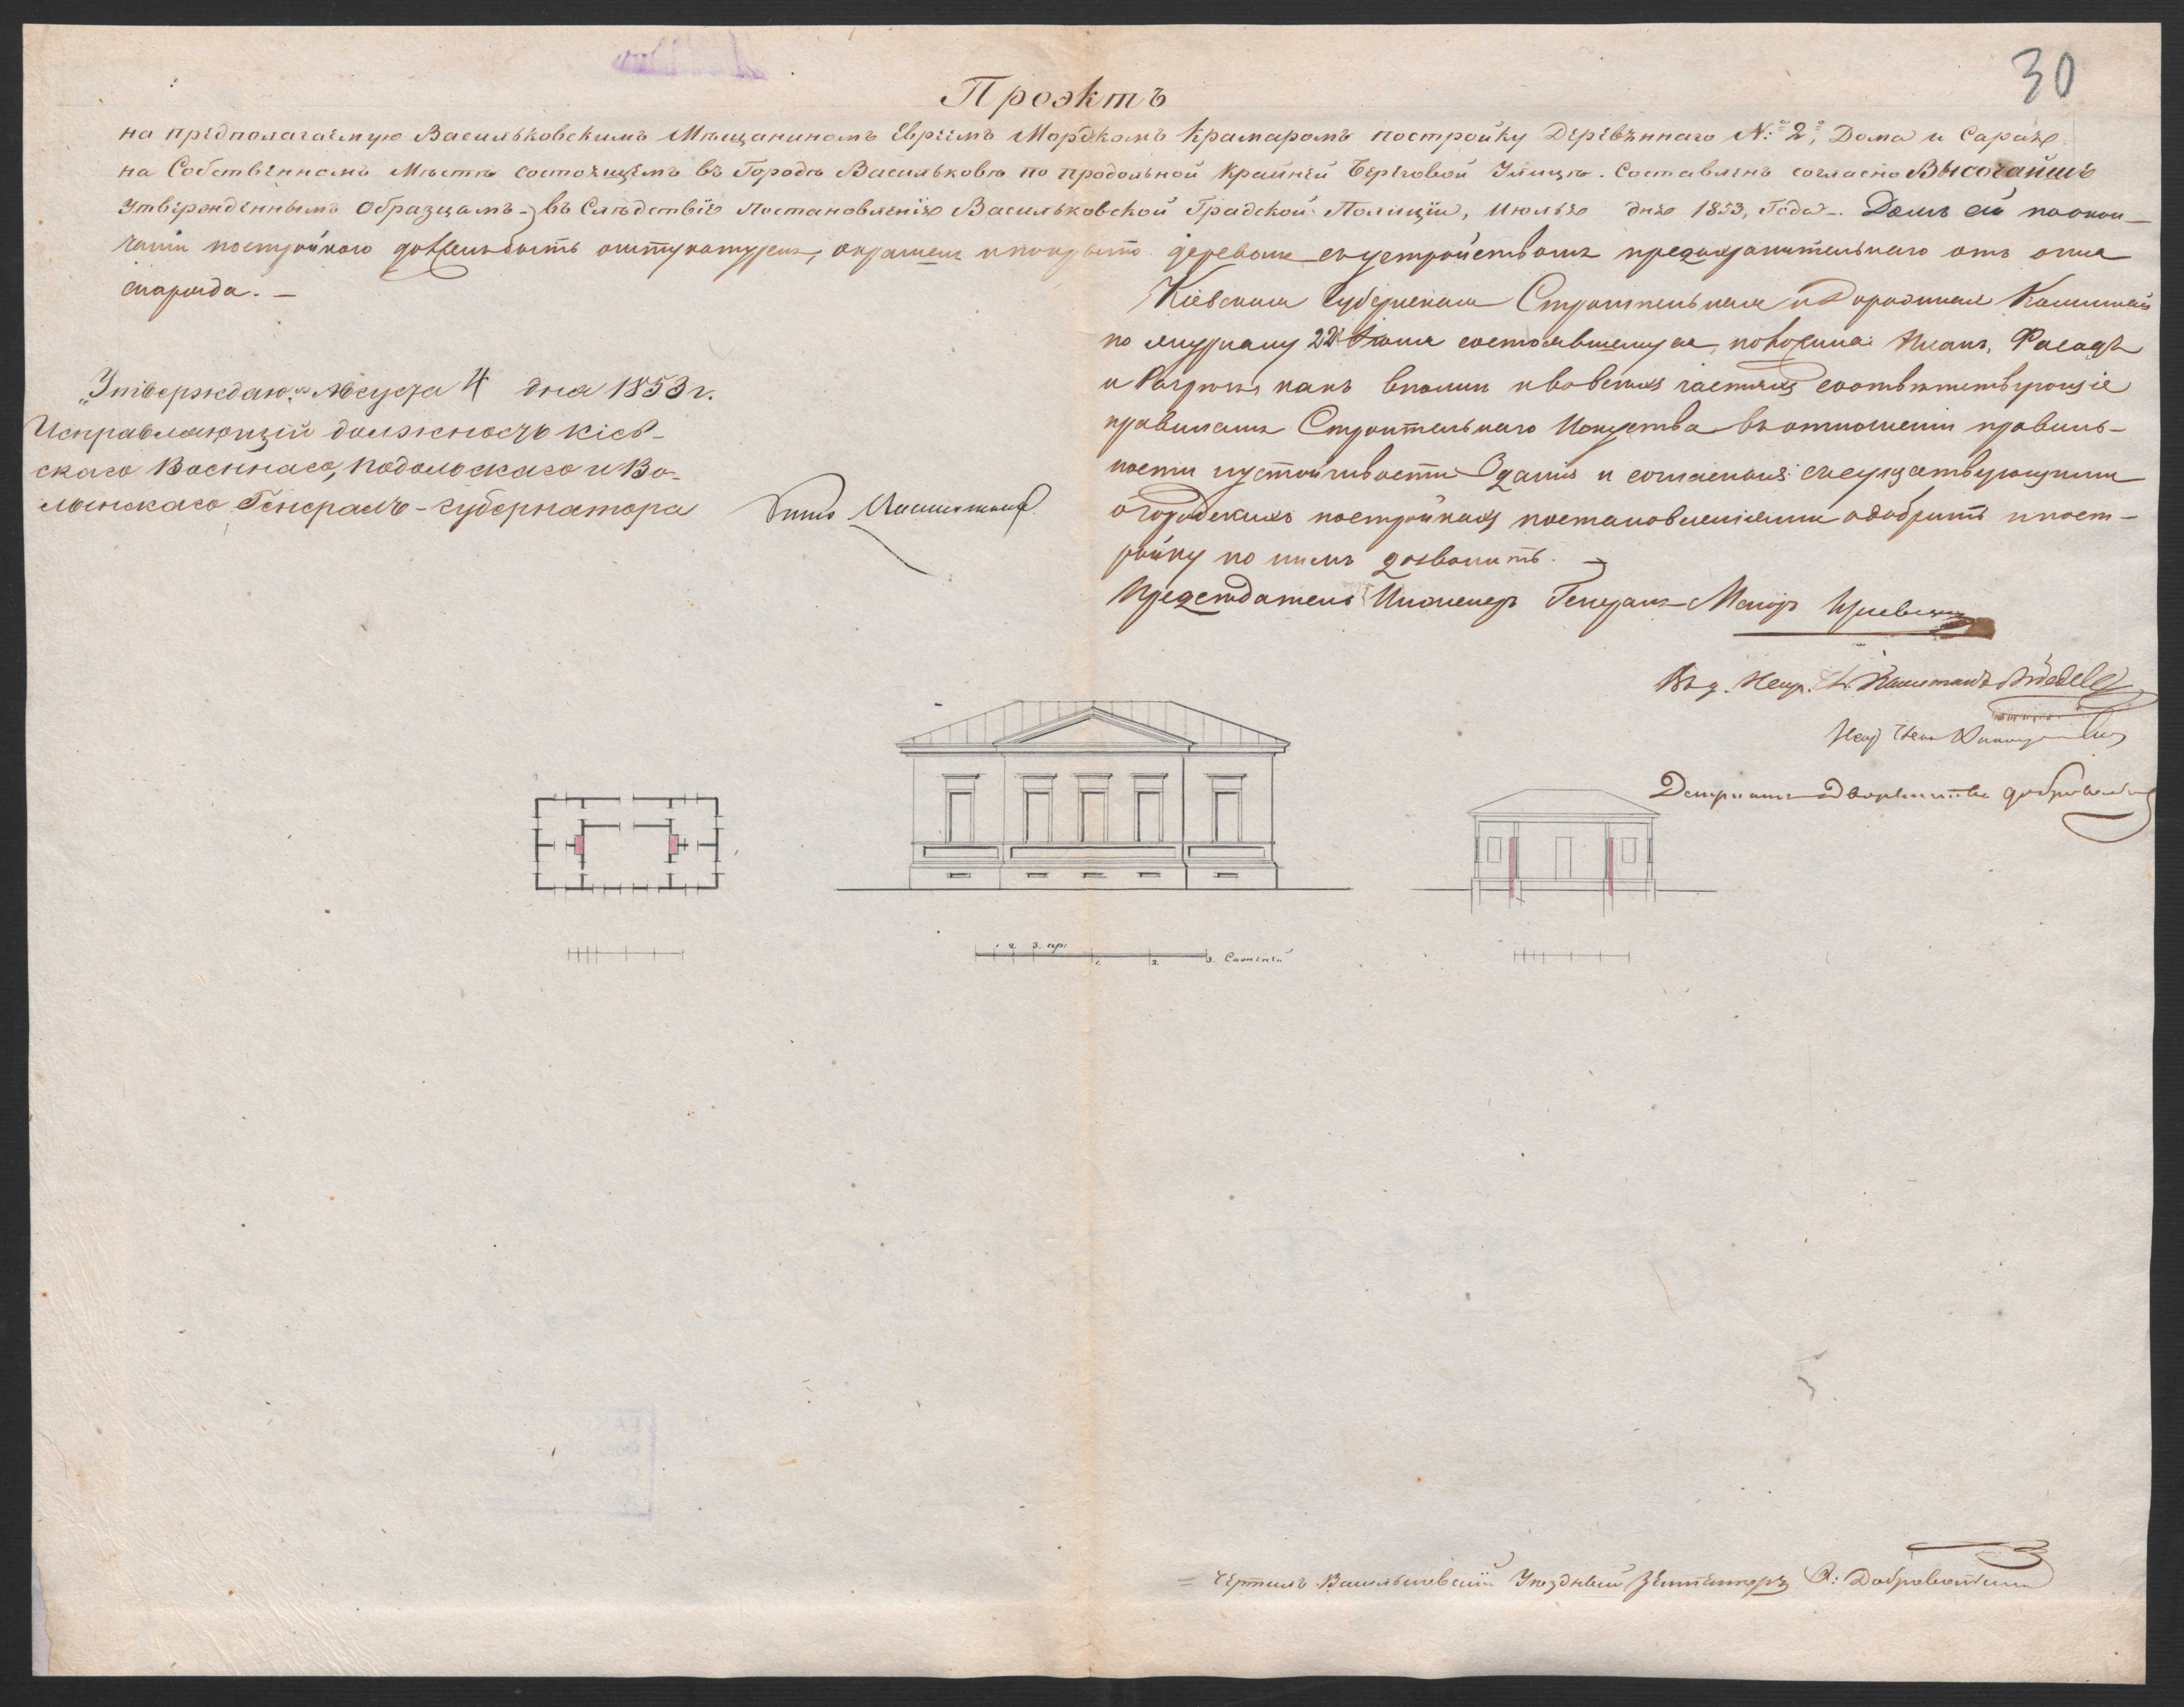 30
Проэктъ
на предполагаемую Васильковскимъ Мѣщаниномъ Евреемъ Мордкомъ Крамаромъ постройку Деревяннаго №: 2, Дома и Сарая
на Собственномъ Мѣстѣ состоящемъ въ Городѣ Васильковѣ по продольной Крайней Береговой Улицѣ. Составленъ согласно Высочайше
Утвержденнымъ Образцамъ въ Слѣдствіе Постановленія Васильковской Градской Полиціи, Июлья дня 1853, Года. Домъ сей по окон-
чаніи постройкою долженъ быть оштукатуренъ, окрашенъ и покрытъ деревомъ съ устройствомъ предохранительнаго отъ огня
снаряда. —
„Утверждаю." Августа 4 дня 1853 г.
Исправляющій должность Кіев-
скаго Военнаго, Подольскаго и Во-
лынскаго Генералъ-Губернатора
Кіевская Губернская Строительная и Дорожная Коммисія
по журналу 22 Іюля состоявшемуся, положила: Планъ, Фасадъ
и Разрѣзъ, какъ вполнѣ и во всѣхъ частяхъ соотвѣтствующіе
правиламъ Строительнаго Искуства въ отношеніи правиль-
ности и устойчивости Зданія и согласные съ существующими
о городскихъ постройкахъ постановленіями одобрить и пост-
ройку по нимъ дозволить.
Предсѣдатель Инженеръ Генералъ-Маіоръ
Капитанъ
Депутатъ Дворянства
1. 2. 3. ар:
1. 2. 3. Саженей
Чертилъ Васильковскій Уѣздный Землемеръ